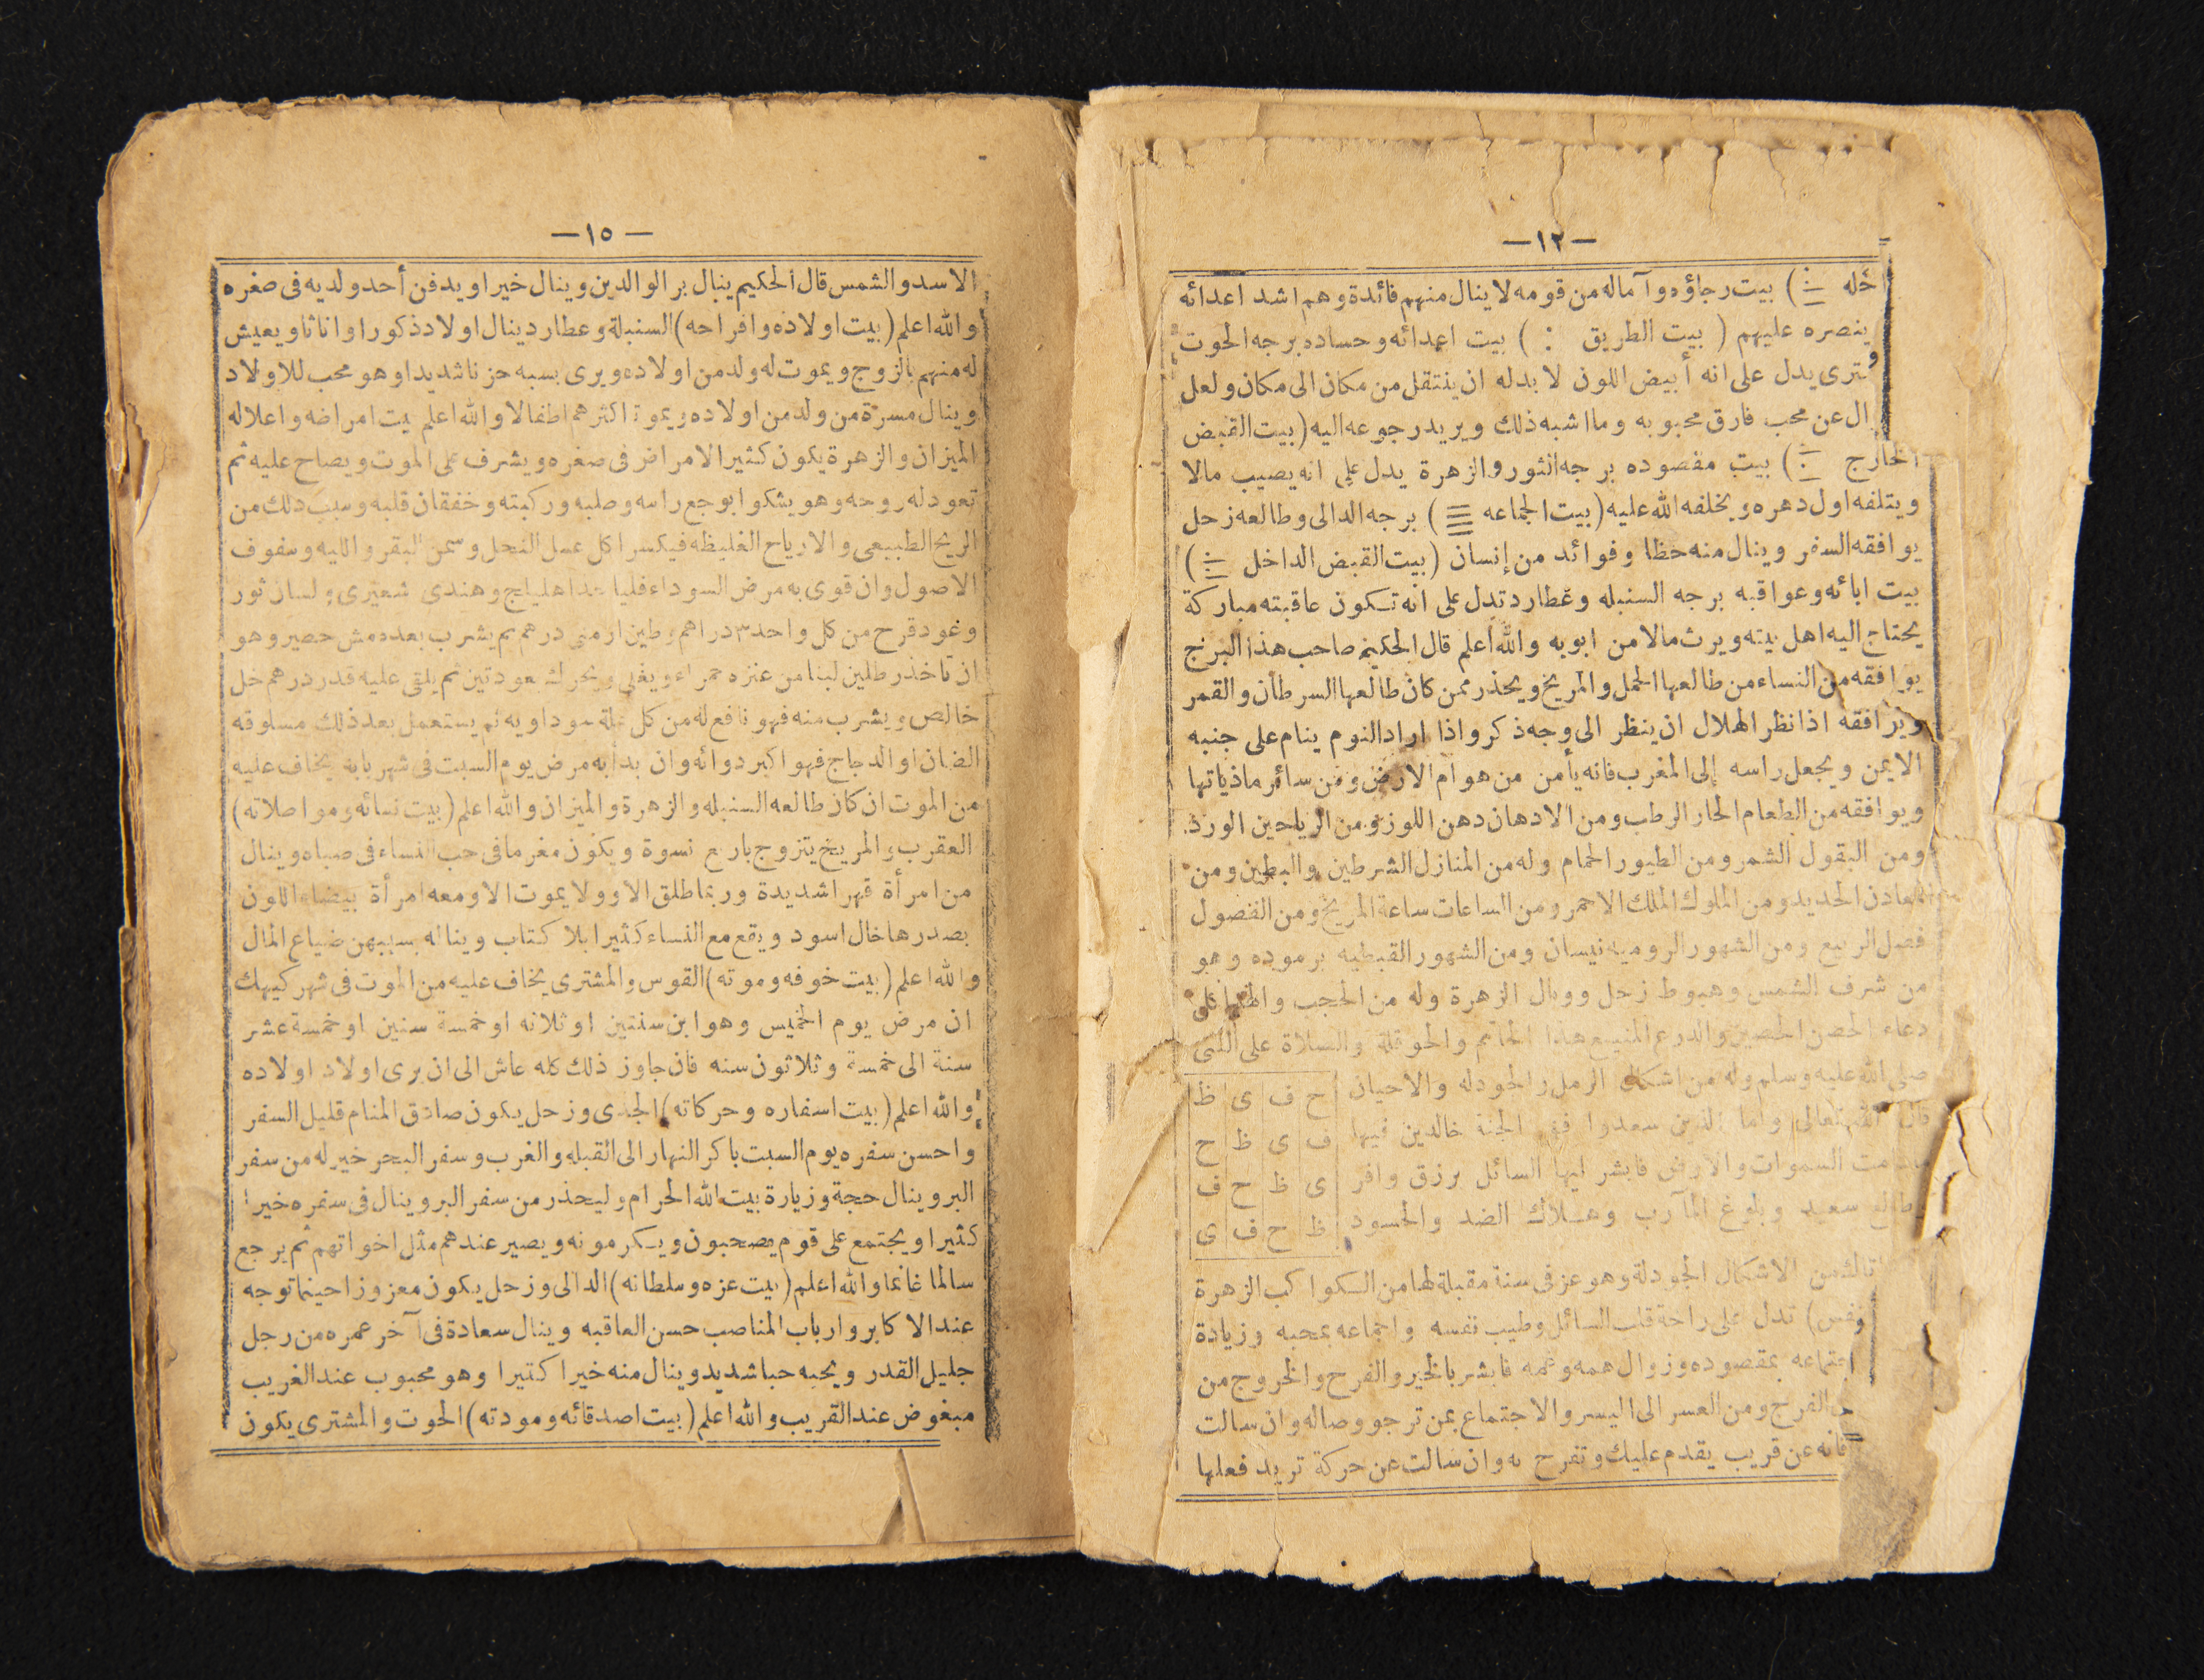 —١٢—
خله ) بيت رجاؤه وآماله من قومه لا ينال منهم فائدة وهم اشد اعدائه
ينصره عليهم ( بيت الطريق ⁝ ) بيت اعدائه وحساده برجه الحوت
يدل على انه أبيض اللون لا بدله ان ينتقل من مكان الى مكان ولعل
ال عن محب فارق محبوبه وما اشبه ذلك ويريد رجوعه اليه (بيت القبض
الخارج ) بيت مقصوده برجه الثور والزهرة يدل على انه يصيب مالا
ويتلفه اول دهره ويخلفه الله عليه (بيت الجماعه ) برجه الدالى وطالعه زحل
يوافقه السفر وينال منه حظا وفوائد من إنسان (بيت القبض الداخل )
بيت ابائه وعواقبه برجه السنبله وعطارد تدل على انه تكون عاقبته مباركة
يحتاج اليه اهل بيته ويرث مالا من ابويه والله أعلم قال الحكيم صاحب هذا البرج
يوافقه من النساء من طالعها الحمل والمريخ ويحذر ممن كان طالعها السرطان والقمر
ويوافقه اذا نظر الهلال ان ينظر الى وجه ذكر واذا اراد النوم ينام على جنبه
الايمن ويجعل راسه إلى المغرب فانه يأمن من هوام الارض ومن سائر ماذياتها
ويوافقه من الطعام الحار الرطب ومن الادهان دهن اللوز ومن الرياحين الورد
ومن البقول الشمر ومن الطيور الحمام وله من المنازل الشرطين والبطين ومن
المعادن الحديد ومن الملوك الملك الاحمر ومن الساعات ساعة المريخ ومن الفصول
فصل الربيع ومن الشهور الروميه نيسان ومن الشهور القبطيه برموده وهو
من شرف الشمس وهبوط زحل ووبال الزهرة وله من الحجب
دعاء الحصن الحصين والدرع المنيع هذا الخاتم والحوقلة والصلاة على النبى
صلى الله عليه وسلم وله من اشكال الرمل الجودله والاحيان ح ف ى ظ
قال الله تعالى واما الذين سعدوا ففى الجنة خالدين فيها ف ى ظ ح
مادامت السموات والارض فابشر ايها السائل برزق وافر ى ظ ح ف
وطالع سعيد وبلوغ المآرب وهلاك الضد والحسود ظ ح ف ى
ثالث من الاشكال الجودلة وهو عز فى سنة مقبلة لها من الكواكب الزهرة
تدل على راحة قلب السائل وطيب نفسه واجماعه بمحبه وزيادة
اجتماعه بمقصوده وزوال همه وغمه فابشر بالخير والفرح والخروج من
الفرج ومن العسر الى اليسر والاجتماع بمن ترجو وصاله وان سالت
فانه عن قريب يقدم عليك وتفرح به وان سالت عن حركة تريد فعلها
—١٥—
الاسد والشمس قال الحكيم ينال بر الوالدين وينال خيرا ويدفن أحد ولديه فى صغره
والله اعلم (بيت اولاده وافراحه) السنبلة وعطارد ينال اولاد ذكورا واناثا ويعيش
له منهم بالزوج ويموت له ولد من اولاده ويرى بسبه حزنا شديدا وهو محب للاولاد
وينال مسرة من ولد من اولاده ويموت اكثرهم اطفالا والله اعلم بيت امراضه واعلاله
الميزان والزهرة يكون كثير الامراض فى صغره ويشرف على الموت ويصاح عليه ثم
تعود له روحه وهو يشكوا بوجع راسه وصلبه وركبته وخفقان قلبه وسبب ذلك من
الريح الطبيعى والارياح الغليظه فيكسر اكل عسل النحل وسمن البقر والليه وسفوف
الاصول وان قوى به مرض السوداء فليا خدا هليلج وهندى شعيرى ولسان ثور
وعود قرح من كل واحد ٣ دراهم وطين ارمنى درهم ثم يشرب بعده مش حصير وهو
ان تاخذ رطلين لبنا من عنزه حمراء ويغلى ويحرك بعود تين ثم يلقى عليه قدر درهم خل
خالص ويشرب منه فهو نافع له من كل علة سوداويه ثم يستعمل بعد ذلك مسلوقه
الضان او الدجاج فهو اكبر دوائه وان بدا به مرض يوم السبت فى شهر بابه يخاف عليه
من الموت ان كان طالعه السنبله والزهرة والميزان والله اعلم (بيت نسائه ومواصلاته)
العقرب والمريخ يتزوج باربع نسوة ويكون مغرما فى حب النساء فى صباه وينال
من امرأة قهرا شديدة وربما طلق الاو ولا يموت الا ومعه امرأة بيضاء اللون
بصدرها خال اسود ويقع مع النساء كثيرا بلا كتاب ويناله بسببهن ضياع المال
والله اعلم (بيت خوفه وموته) القوس والمشترى يخاف عليه من الموت فى شهر كيهك
ان مرض يوم الخميس وهو ابن سنتين او ثلاثه او خمسة سنين او خمسة عشر
سنة الى خمسة وثلاثون سنه فان جاوز ذلك كله عاش الى ان يرى اولاد اولاده
والله اعلم (بيت اسفاره وحركاته) الجدى وزحل يكون صادق المنام قليل السفر
واحسن سفره يوم السبت باكر النهار الى القبله والغرب وسفر البحر خير له من سفر
البر وينال حجة وزيارة بيت الله الحرام وليحذر من سفر البر وينال فى سفره خيرا
كثيرا ويجتمع على قوم يصحبون ويكرمونه ويصير عندهم مثل اخواتهم ثم يرجع
سالما غانما والله اعلم (بيت عزه وسلطانه) الدالى وزحل يكون معزوزا حينما توجه
عند الاكابر وارباب المناصب حسن العاقبه وينال سعادة فى آخر عمره من رجل
جليل القدر ويحبه حبا شديد وينال منه خيرا كثيرا وهو محبوب عند الغريب
مبغوض عند القريب والله اعلم (بيت اصدقائه ومودته) الحوت والمشترى يكون